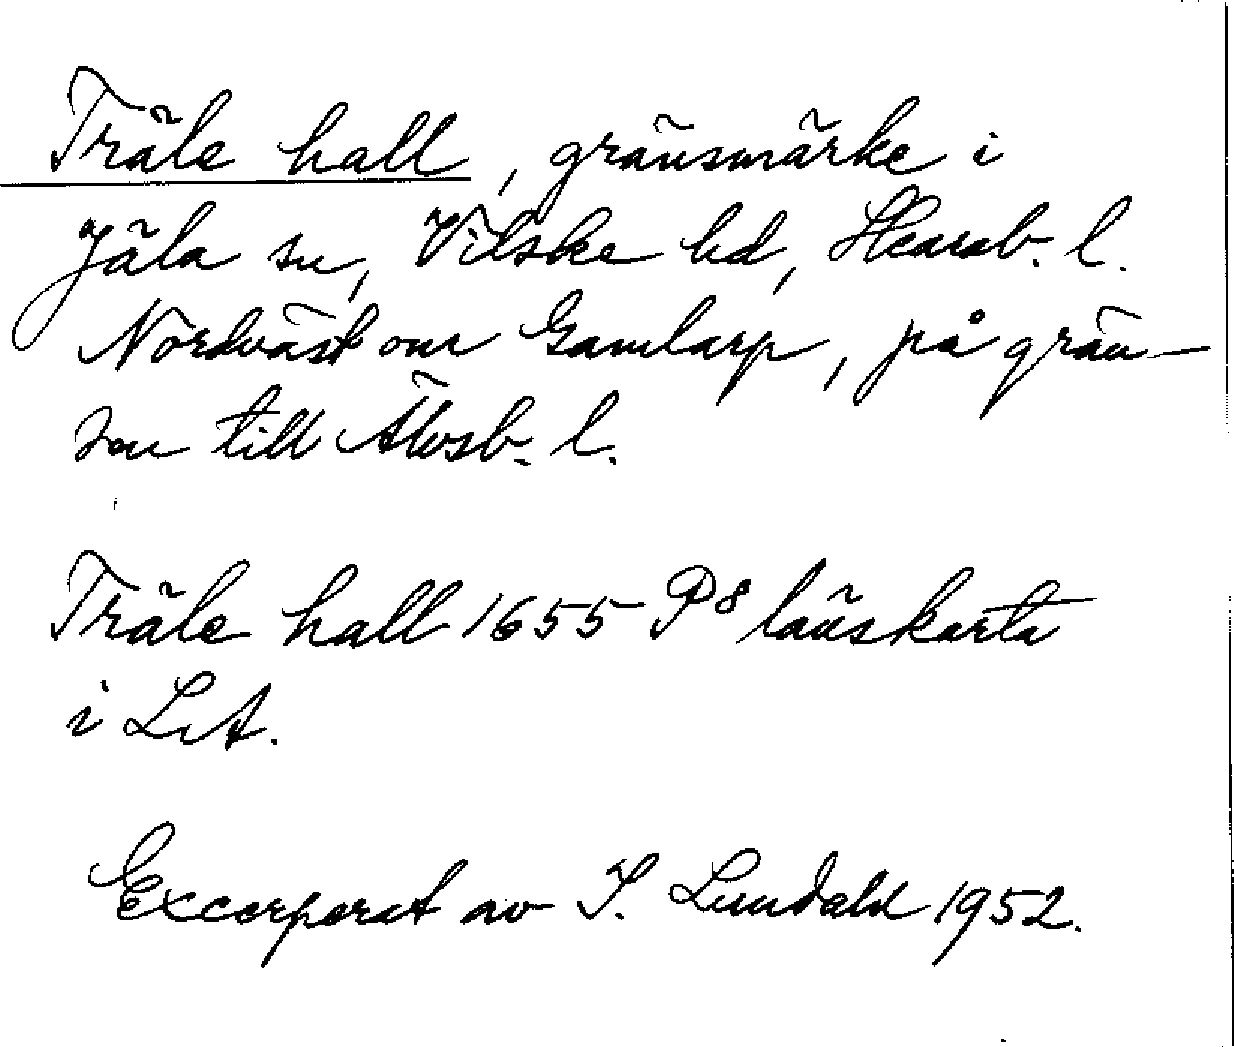 Träle hall, gränsmärke i
Jäla sn, Vilske hd, Skarab. l.
Nordväst om Gamlarp, på grän-
sen till Älvsb. l.
Träle hall 1655 P8 länskarta
i LA.
Excerperat av I. Lundahl 1952.